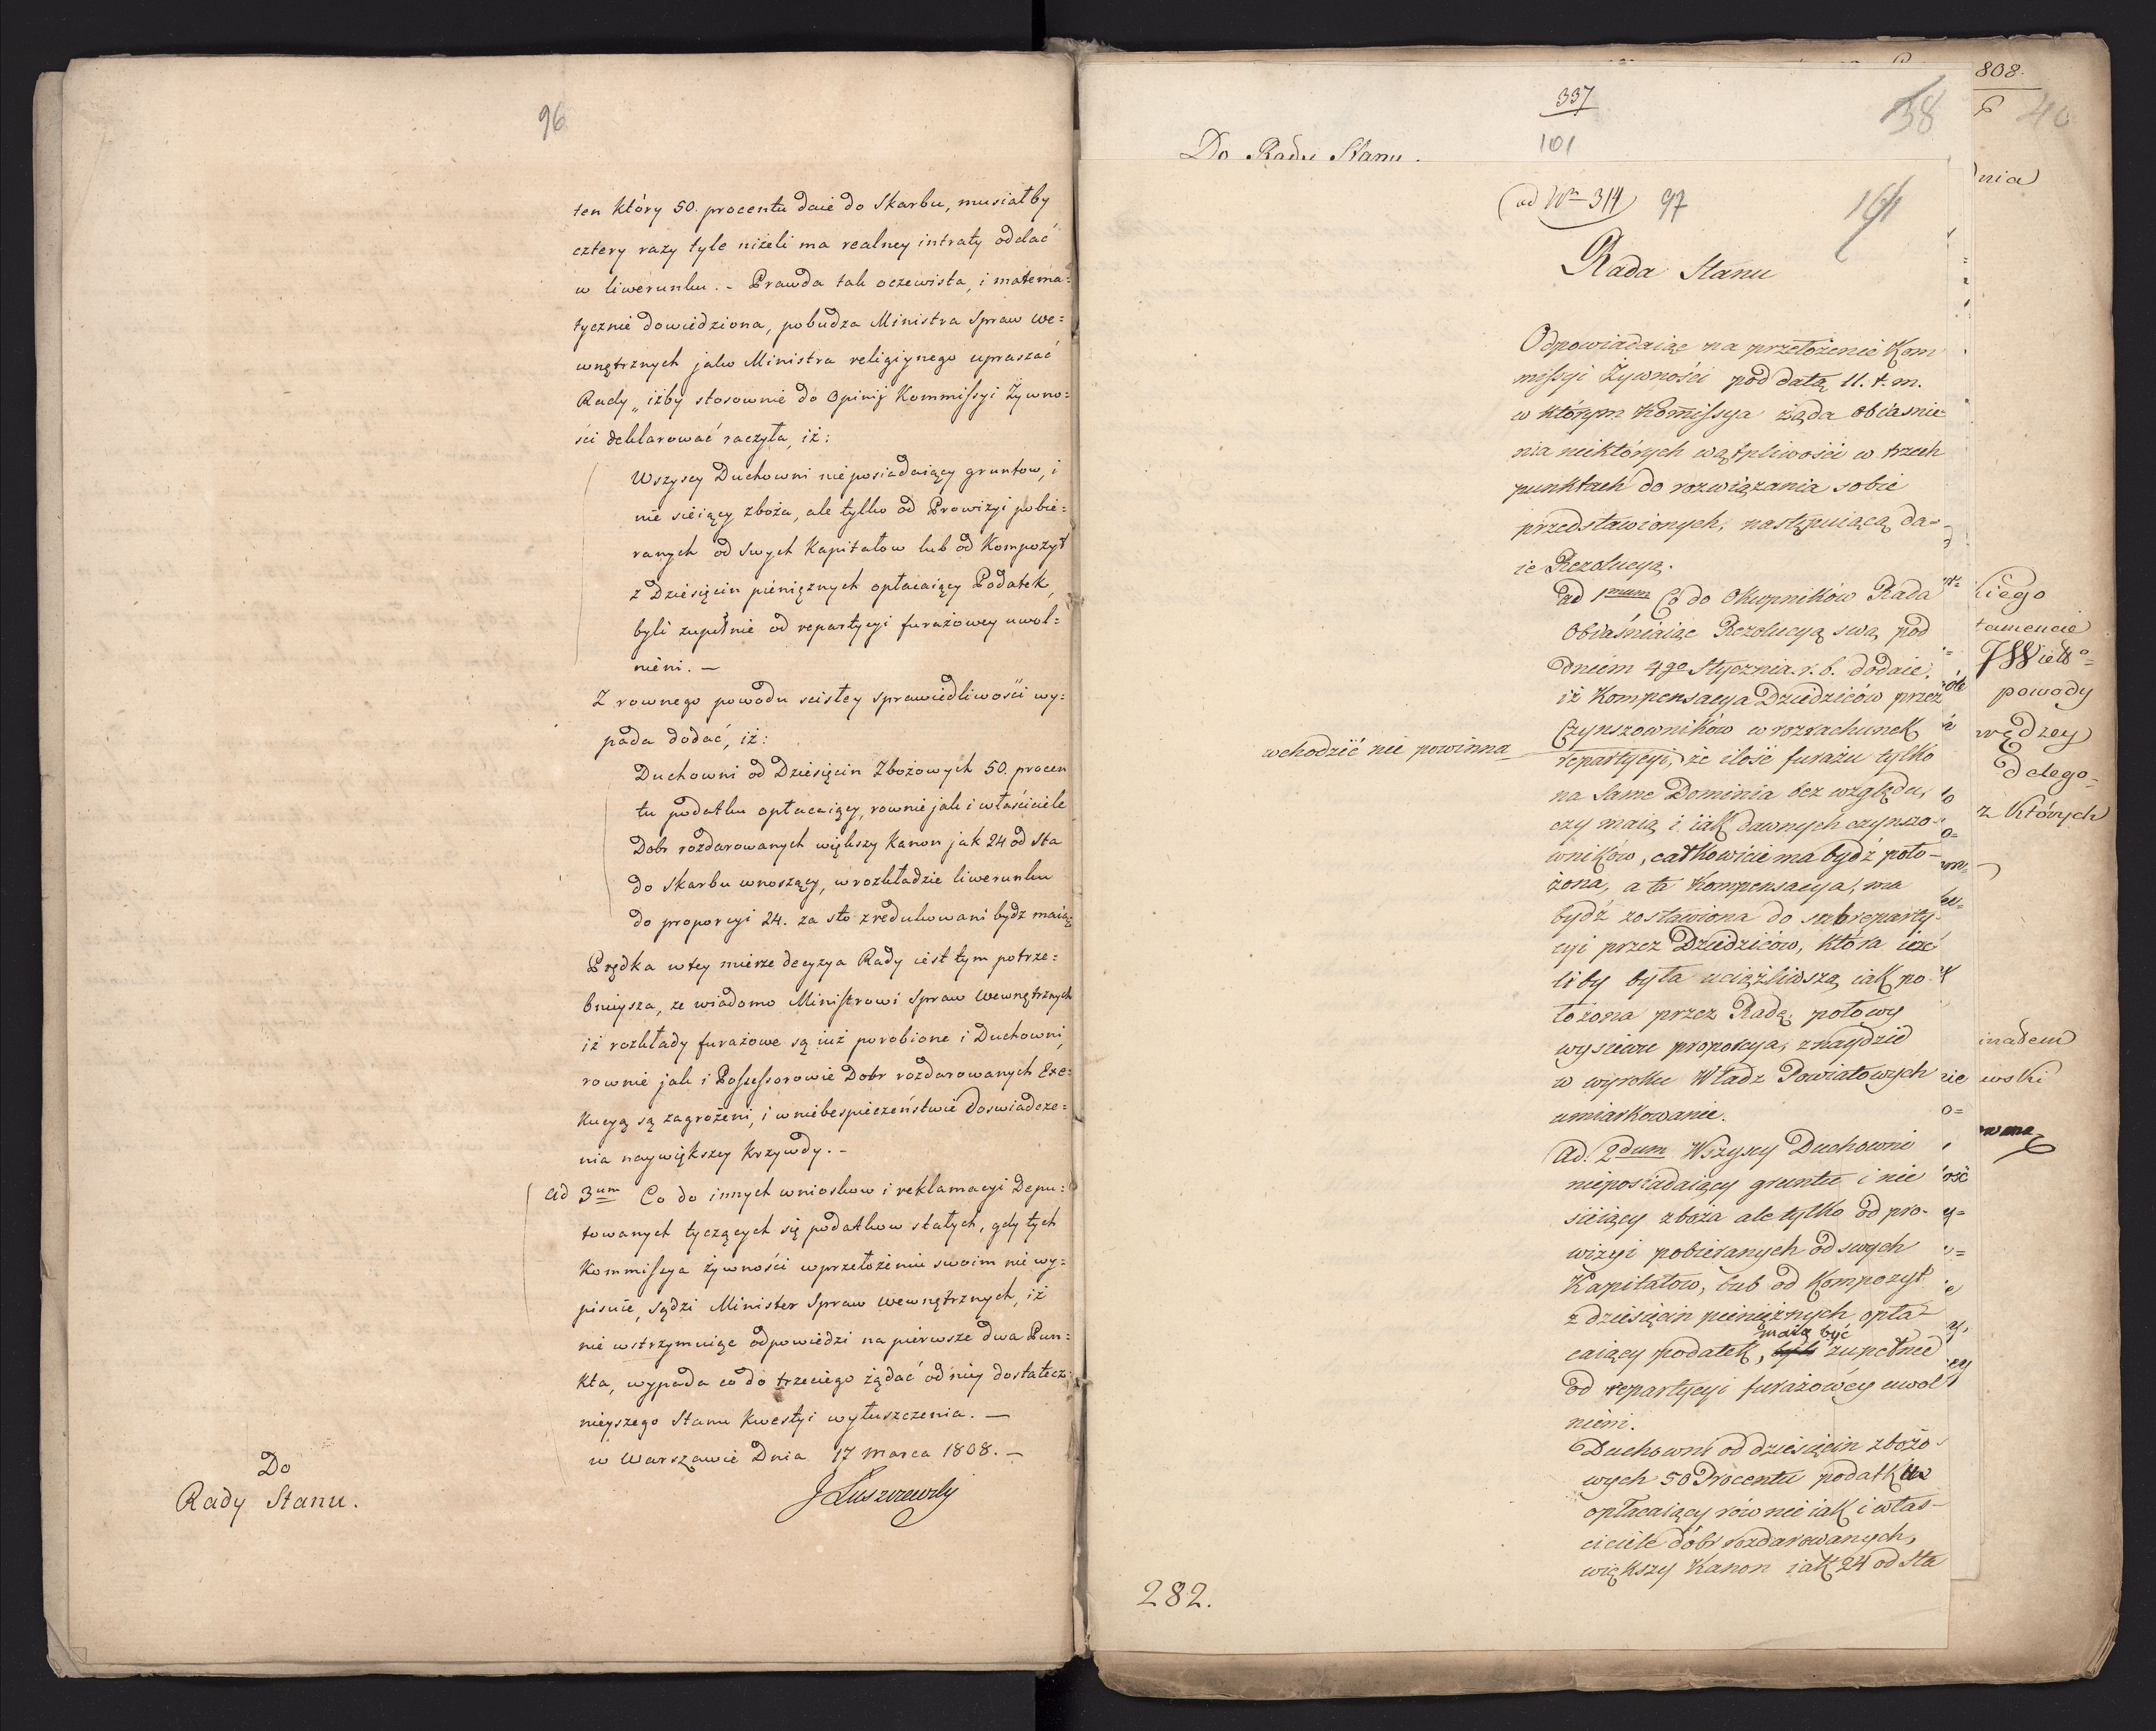 96
ten który 50. procentu daie do Skarbu, musiałby
cztery razy tyle niżeli ma realney intraty oddać
w liwerunku. - Prawda tak oczewista, i matema=
tycznie dowiedziona, pobudza Ministra Spraw We=
wnętrznych jako Ministra religiynego upraszać
Rady „ iżby stosownie do Opinij Kommissyi Żywno=
ści deklarować raczyła, iż:
Wszyscy Duchowni nie posiadaiący gruntow, i
nie sieiący zboża, ale tylko od Prowizyi pobie=
ranych od swych Kapitałow lub od Kompozyt
z Dziesięcin pieniężnych opłacaiący Podatek,
byli zupełnie od repartycyi furażowey uwol=
nieni. —
Z rownego powodu scisłey sprawiedliwości wy=
pada dodać, iż:
Duchowni od Dziesięcin Zbożowych 50. procen
tu podatku opłacaiący, rownie jak i właściciele
Dobr rozdarowanych większy Kanon jak 24 od Sta
do Skarbu wnoszący, w rozkładzie liwerunku
do proporcyi 24. za sto zredukowani bydz maią
Prędka w tey mierze decyzya Rady iest tym potrze=
bnieysza, ze wiadomo Ministrowi Spraw Wewnętrznych
iż rozkłady furażowe są iuż porobione i Duchowni,
rownie jak i Possessorowie Dobr rozdarowanych Exe=
kucyą są zagrożeni, i w niebespieczeństwie doswiadcze=
nia naywiększey Krzywdy. -
ad 3um Co do innych wnioskow i reklamacyi Depu=
towanych tyczących się podatkow stałych, gdy tych
Kommissya żywności w przełożeniu swoim nie wy=
pisuie, sądzi Minister Spraw Wewnętrznych, iż
nie wstrzymuiąc odpowiedzi na pierwsze dwa Pun=
kta, wypada co do trzeciego żądać od niey dostatecz=
nieyszego Stanu kwestyi wyłuszczenia. —
w Warszawie Dnia 17 Marca 1808. —
J Łuszczewski
Do
Rady Stanu.
337
101
38
Do Rady Stanu.
ad Nr 314
97
Rada Stanu
Odpowiadaiąc na przełożenie Kom
missyi Żywności pod datą 11. t. m.
w którym Kommissya żąda obiasnie=
nia niektórych wątpliwości w trzech
punktach do rozwiązania sobie
przedstawionych, następuiącą da=
ie Rezolucyą.
ad 1mum Co do Okupników Rada
Obiaśniaiąc Rezolucyą swą pod
dniem 4go Stycznia r. b. dodaie,
iż Kompensacya Dziedziców przez
Czynszowników w rozrachunek
wchodzić nie powinna
repartycyi, że ilość furażu tylko
na same Dominia bez względu,
czy maią i iak dawnych czynszo-
wników, całkowicie ma bydź poło-
żona, a ta Kompensacya, ma
bydź zostawiona do subreparty-
cyi przez Dziedziców, która ieże
liby była uciążliwszą iak po-
łożona przez Radę połowy
wysiewu proporcya, znaydzie
w wyroku Władz Powiatowych
umiarkowanie.
Ad. 2dum Wszyscy Duchowni
nieposiadaiący gruntu i nie
sieiący zboża ale tylko od pro-
wizyi pobieranych od swych
Kapitałow, lub od Kompozyt
z dziesięcin pieniężnych opła-
caiący podatek, byli maią być zupełnie
od repartycyi furażowéy uwol
nieni.
Duchowni od dziesięcin zbożo-
wych 50 Procentu podatku
opłacaiący równie iak i włas-
ciciele dóbr rozdarowanych,
większy Kanon iak 24 od sta
282.
808.
40
nia
kiego
tamencie
JWielo=
powody
wędzey
delego=
z których
wski